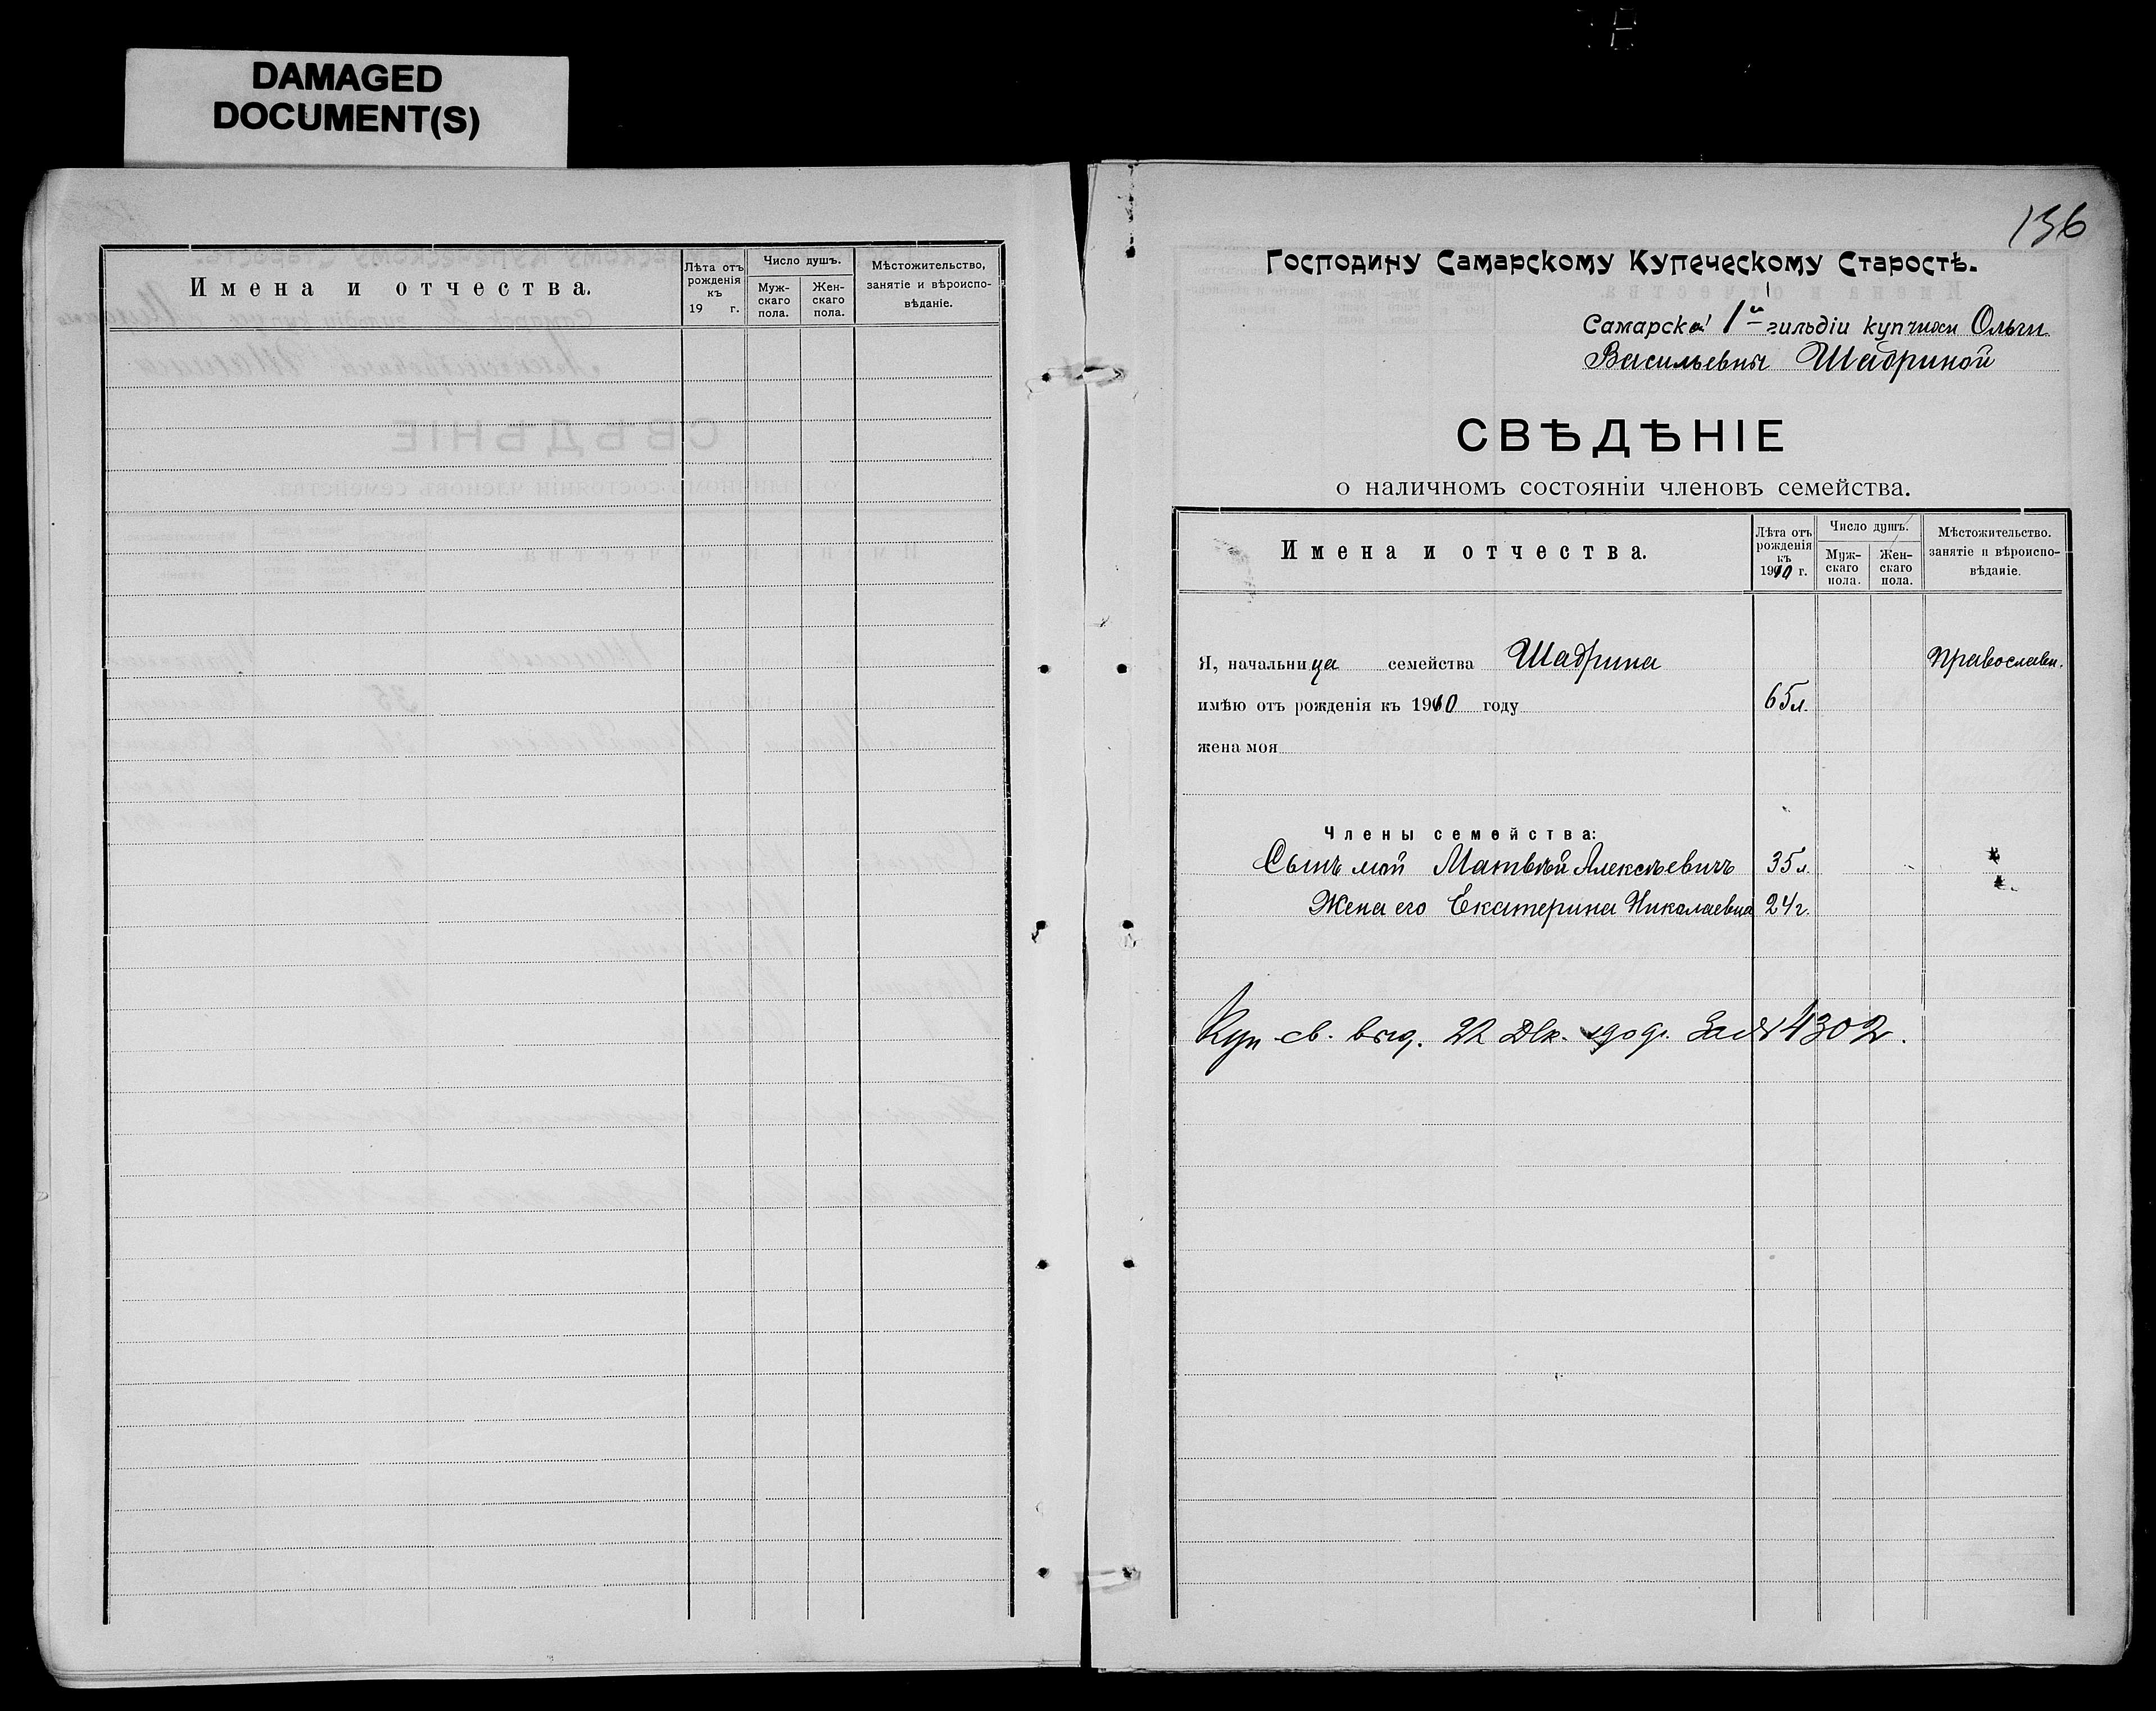 DAMAGED
DOCUMENT(S)
Имена и отчества.
Лѣта отъ
рожденія
къ
19 г.
Число душъ.
Муж-
скаго
пола.
Жен-
скаго
пола.
Мѣстожительство,
занятіе и вѣроиспо-
вѣданіе.
136
Господину Самарскому Купеческому Старостѣ.
Самарской 1й гильдіи купчихи Ольги
Васильевны Шадриной
СВѢДѢНІЕ
о наличномъ состояніи членовъ семейства.
Имена и отчества.
Лѣта отъ
рожденія
къ
1910 г.
Число душъ.
Муж-
скаго
пола.
Жен-
скаго
пола.
Мѣстожительство.
занятіе и вѣроиспо-
вѣданіе.
Я, начальница семейства Шадрина Православн.
имѣю отъ рожденія къ 1910 году 65 л.
жена моя
Члены семейства:
Сынъ мой Матвѣй Алексѣевичъ 35 л.
Жена его Екатерина Николаевна 24 г.
Куп св. выд. 22 Дек. 1909г. За № 4302.